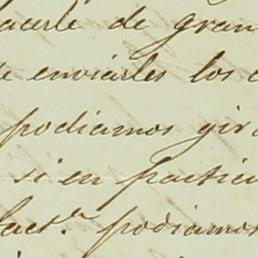 hacerle de gran
enviarles los
podiamos gir
si en particu
fact.ª podiamos